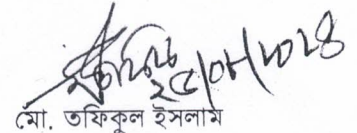 ২৫/০৮/২০২৪
মো. তফিকুল ইসলাম